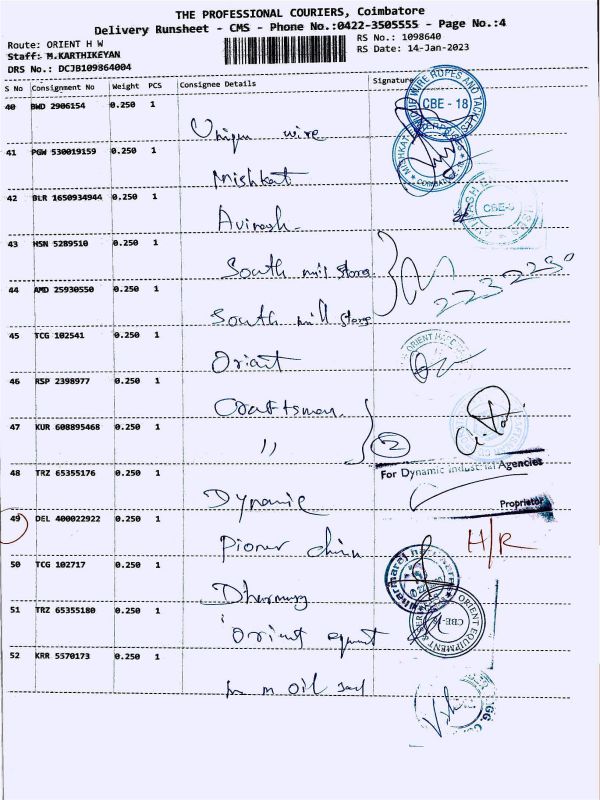 THE PROFESSIONAL COURIERS, Coimbatore
Delivery Runsheet - CMS - Phone No.:0422-3505555 - Page No.:4
Route: ORIENT H W
RS No.: 1098640
Staff: M.KARTHIKEYAN
RS Date: 14-Jan-2023
DRS No.: DCJB109864004
S No Consignment No Weight PCS Consignee Details Signature
40 BWD 2906154 0.250 1
WIRE ROPES AND TACK
CBE - 18
Unique wire
41 PGW 530019159 0.250 1
MISHKAT
COIMBATORE
Mishkat
42 BLR 1650934944 0.250 1
CBE-
Avinash
43 HSN 5289510 0.250 1
South mill stores
223228
44 AMD 25930550 0.250 1
South mill stores
45 TCG 102541 0.250 1
ORIENT
Orient
46 RSP 2398977 0.250 1
Craftsman
47 KUR 608895468 0.250 1
"
2
For Dynamic Industrial Agencies
48 TRZ 65355176 0.250 1
Proprietor
Dynamic
49 DEL 400022922 0.250 1
H/R
Pioner
50 TCG 102717 0.250 1
Dharmaraj
51 TRZ 65355180 0.250 1
ORIENT EQUIPMENT &
CBE-18
Orient equment
52 KRR 5570173 0.250 1
m oil seal